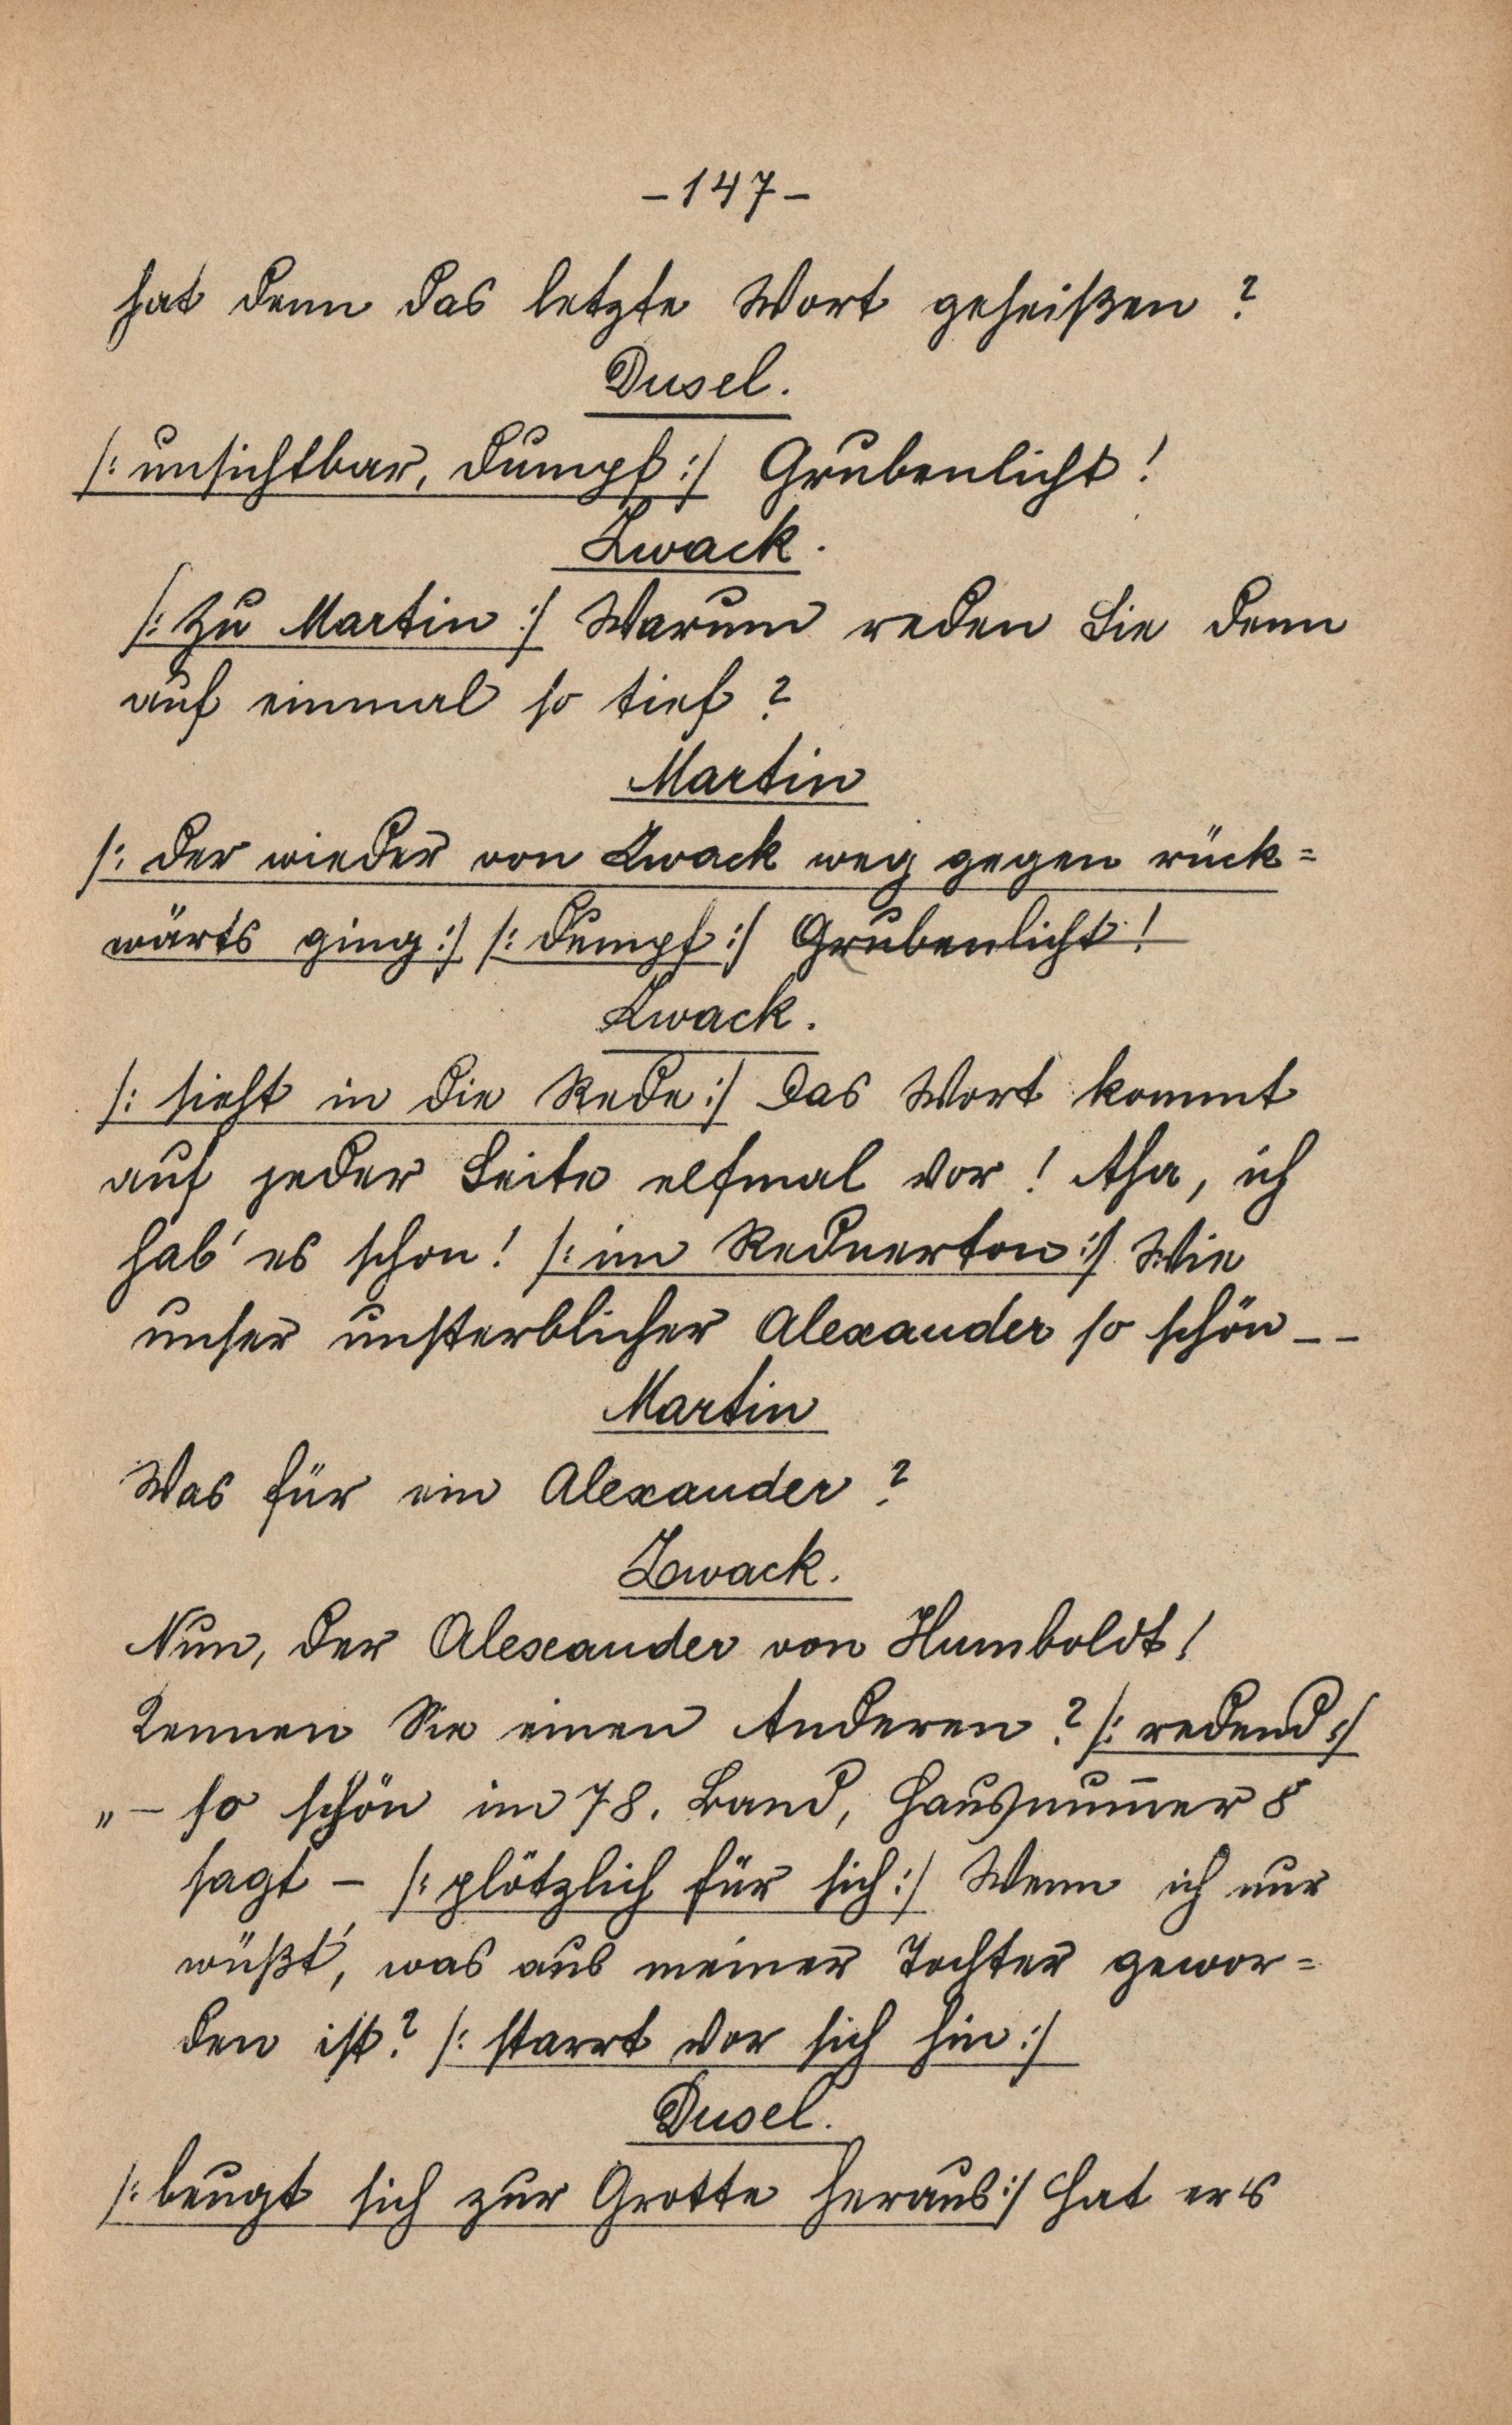 - 147 -
hat denn das letzte Wort geheißen ?
Dusel.
/: unsichtbar, dumpf :/ Grubenlicht !
Zwack.
/: zu Martin :/ Warum reden Sie denn
auf einmal so tief ?
Martin
/: der wieder von Zwack weg gegen rück=
wärts ging :/ /: dumpf :/ Grubenlicht !
Zwack.
/: sieht in die Rede :/ Das Wort kommt
auf jeder Seite elfmal vor ! Aha, ich
hab' es schon ! /: im Rednerton :/ Wie
unser unsterblicher Alexander so schön - -
Martin
Was für ein Alexander ?
Zwack.
Nun, der Alexander von Humboldt !
Kennen Sie einen Anderen ? /: redend :/
„ - so schön im 78. Band, Hausnum̄er 8
sagt - /: plötzlich für sich :/ Wenn ich nur
wüßt', was aus meiner Tochter gewor=
den ist ? /: starrt vor sich hin :/
Dusel.
/: beugt sich zur Grotte heraus :/ Hat er's